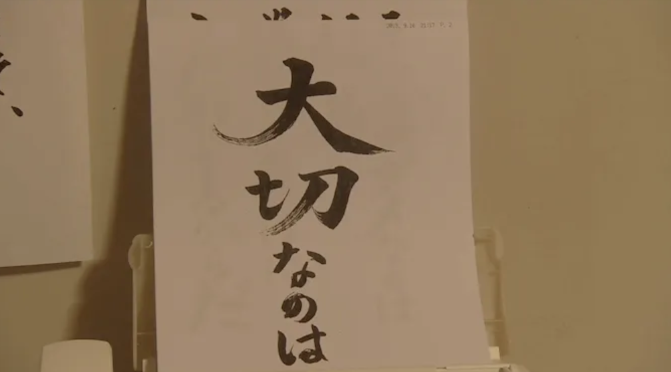 大切なのは